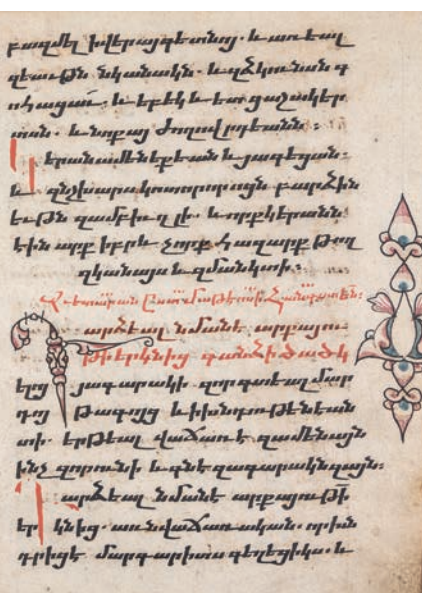 բազմել ի վերայ գետնոյ. և առեալ
զեաւթն նկանակն. և զձկունսն գ
ոհացաւ. և եբեկ և ետ ցաշակեր
տսն. և նոքայ ժողովրդեանն :
Կերան ամենեքեան և յագեցան:
և զնշխարս կոտորոյն բարձին
եւթն զամբիւղ լի. և որք կերանն
էին արք իբրև չորք հազարք թող
զկանայս և զմանկտի :
Աւետարան ըստ Մաթէոսի
Դարձեալ նմանէ արքայու
թի երկնից գանձի ծածկ
ելոյ յագարակի զոր գտեալ մար
դոյ թագոյց և ի խնդութենէ ան
տի. երթեալ վաճառէ զամենայն
ինչ զոր ունի և գնէ զագարակն զայն:
Դարձեալ նմանէ արքայութի
երկնից. առն վաճառական. որ խն
դրիցէ մարգարիտս գեղեցիկս. և